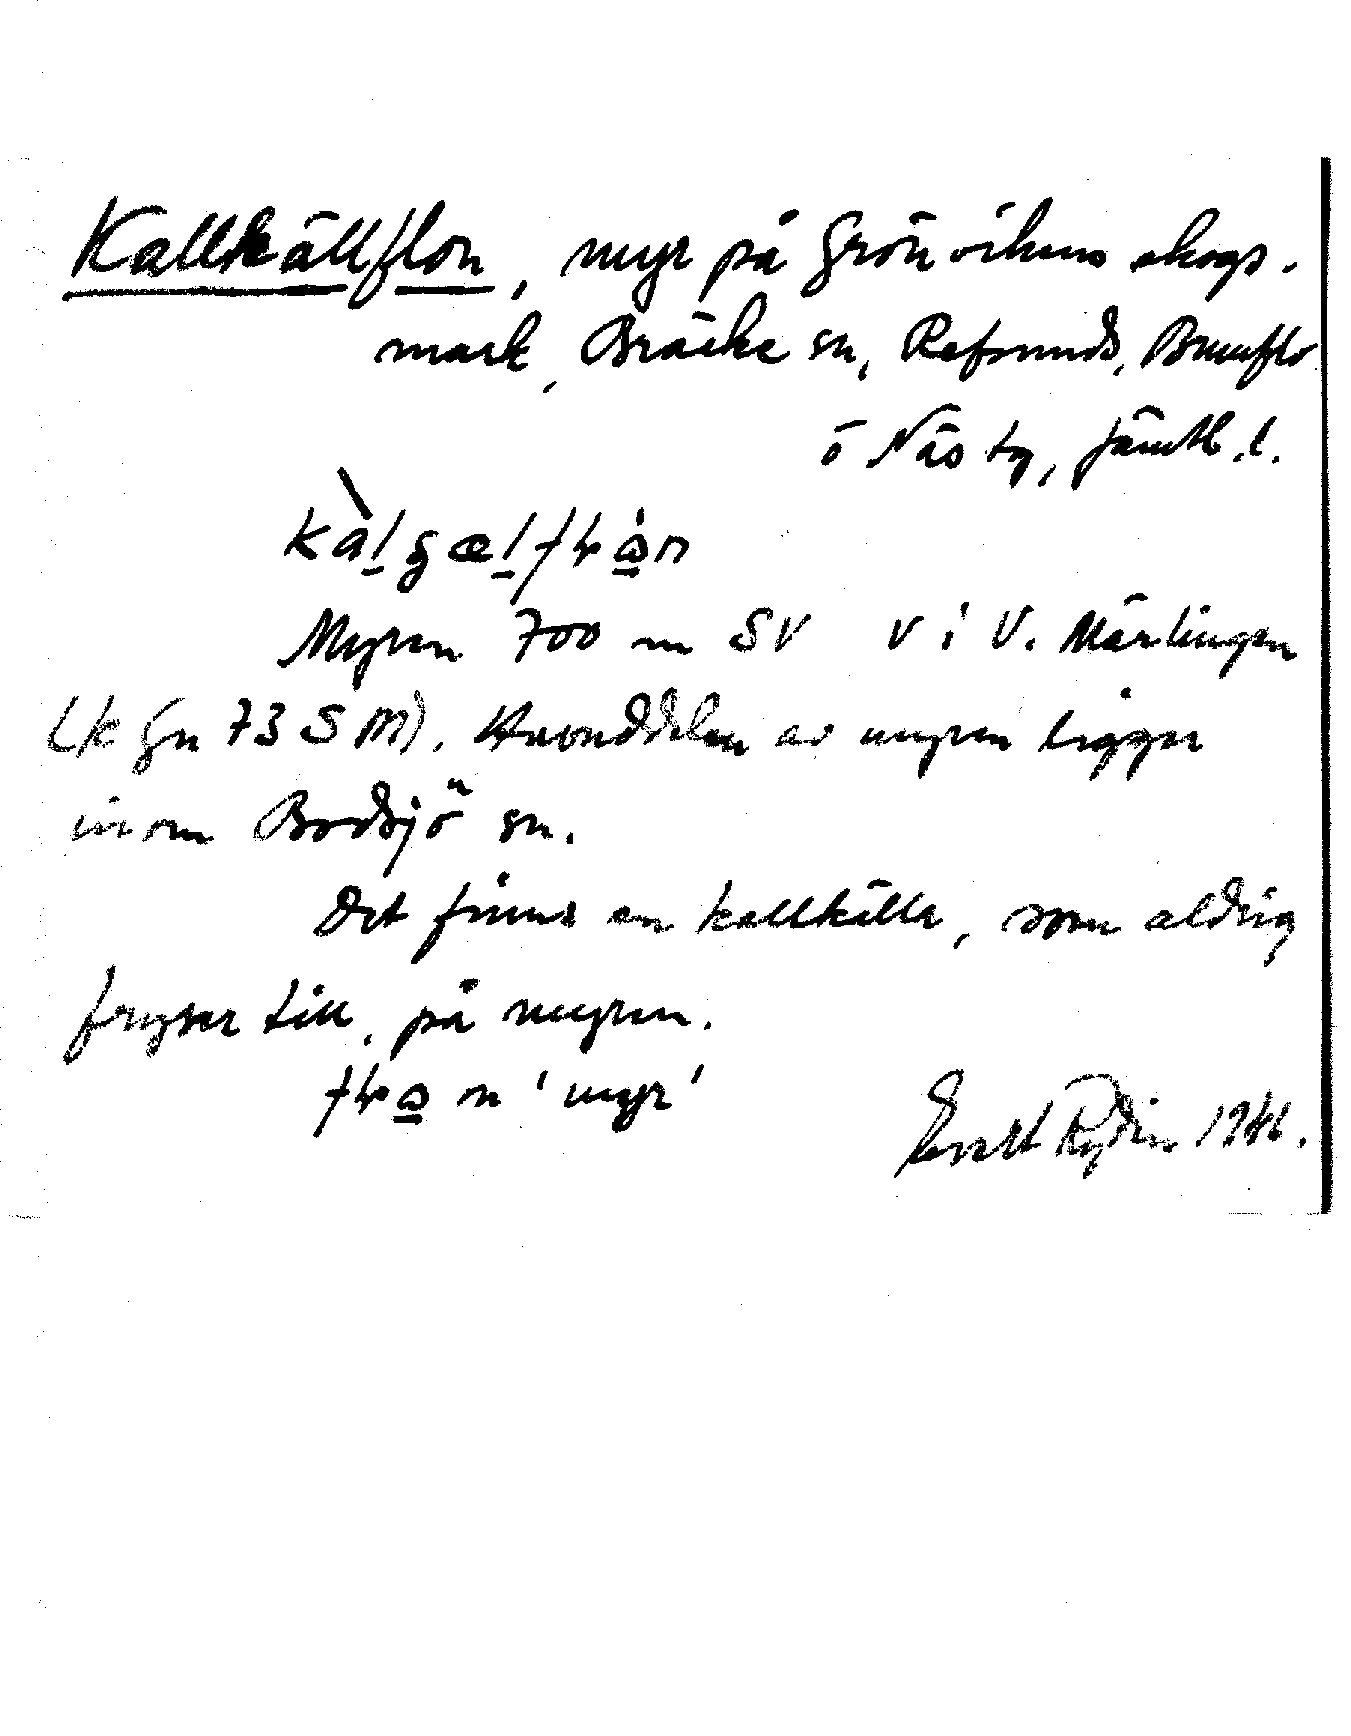 Kallkällflon, myr på Grönvikens skogs-
mark, Bräcke sn, Refsunds, Brunflo
o Näs tg, Jämtl. l.
Myren 700 m SV v i V. Märlingen
(k Gn 73 S M). Huvuddelen av myren ligger
inom Bodsjö sn.
Det finns en kallkälla, som aldrig
fryser till, på myren.
n 'myr'
Evert Rydin 1946.